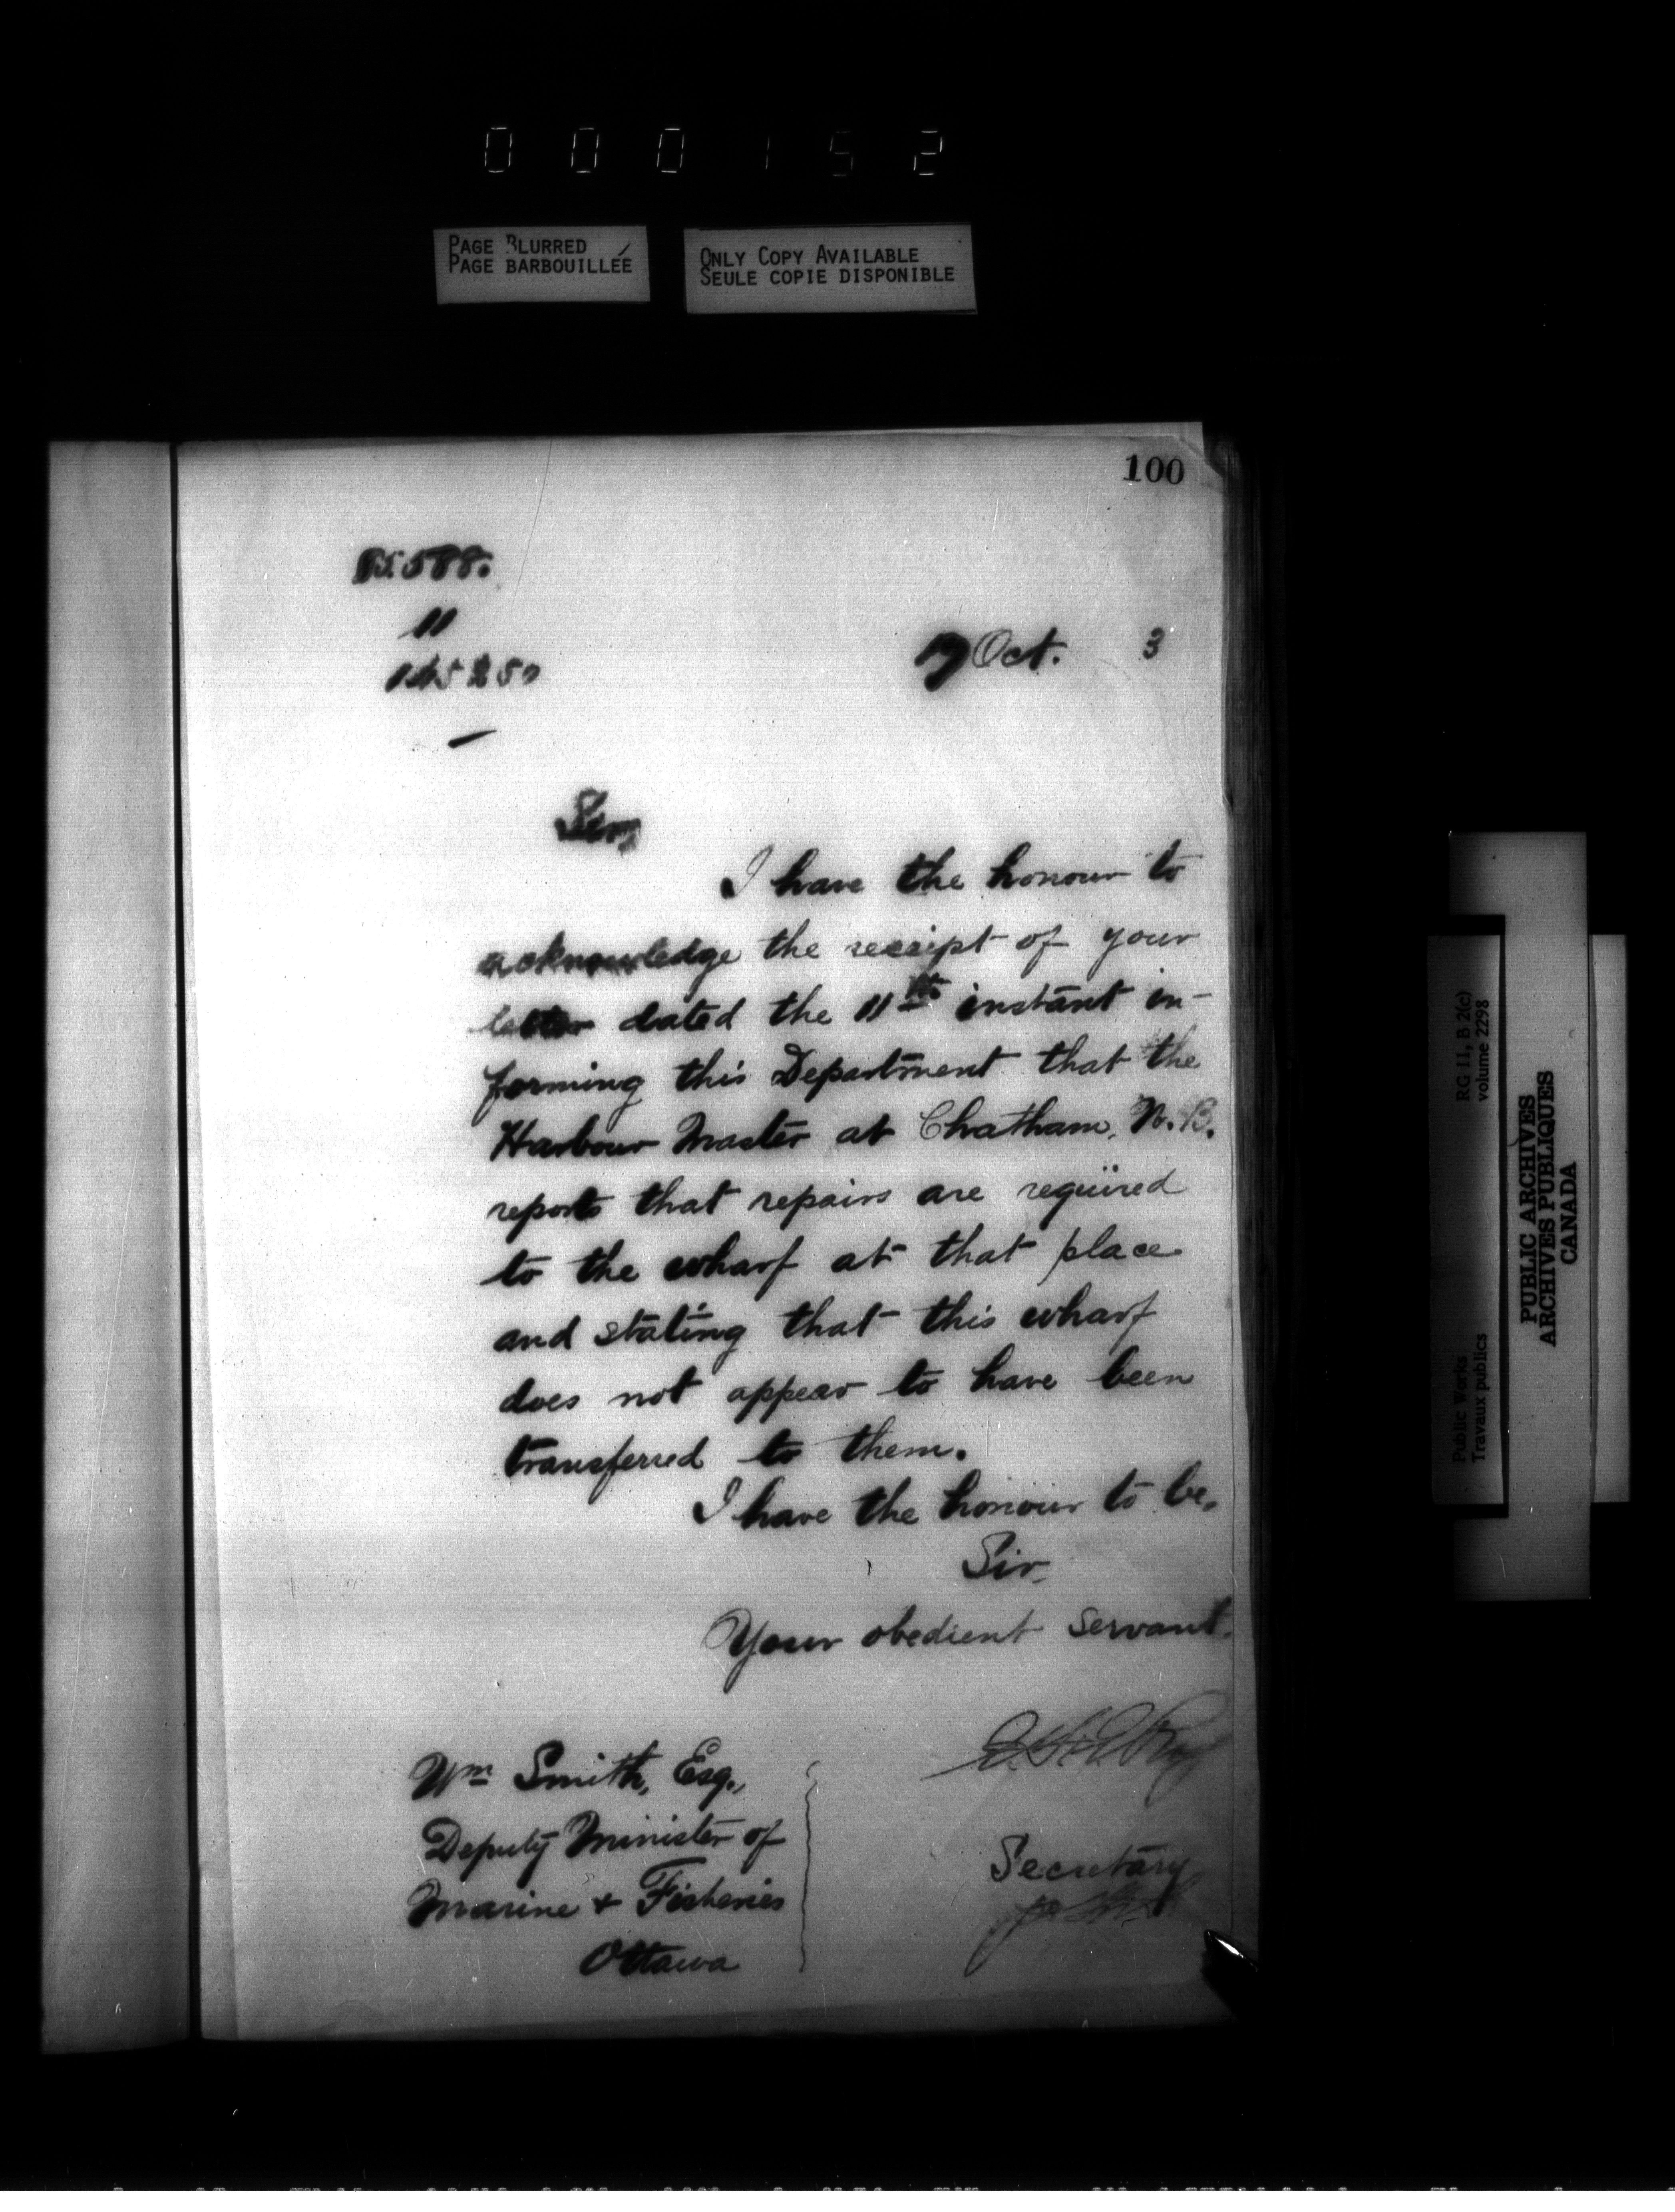 000152
PAGE BLURRED
PAGE BARBOUILLÉE
ONLY COPY AVAILABLE
SEULE COPIE DISPONIBLE
100
11
Oct. 3
Sir,
I have the honour to
acknowledge the receipt of your
letter dated the 11th instant in-
forming this Department that the
Harbour Master at Chatham, N.B.
reports that repairs are required
to the wharf at that place
and stating that this wharf
does not appear to have been
transferred to them.
I have the honour to be,
Sir,
Your obedient servant.
Wm Smith, Esq.,
Deputy Minister of
Marine & Fisheries
Ottawa
Secretary
Public Works
Travaux publics
RG 11, B 2(c)
volume 2298
PUBLIC ARCHIVES
ARCHIVES PUBLIQUES
CANADA